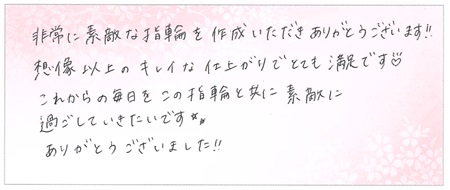 非常に素敵な指輪を作成いただきありがとうございます!!
想像以上のキレイな仕上がりでとても満足です♡
これからの毎日をこの指輪と共に素敵に
過ごしていきたいです**
ありがとうございました!!